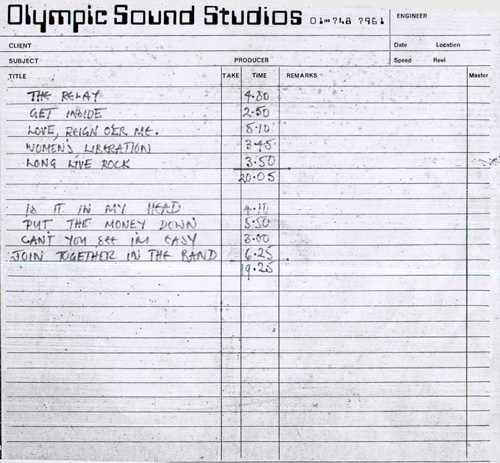 Olympic Sound Studios 01-748 7961
ENGINEER
CLIENT
Date Location
SUBJECT PRODUCER Speed Reel
TITLE TAKE TIME REMARKS Master
THE RELAY 4.30
GET INSIDE 2.50
LOVE, REIGN O'ER ME. 5.10
WOMENS LIBERATION 3.45
LONG LIVE ROCK 3.50
20.05
IS IT IN MY HEAD 4.10
PUT THE MONEY DOWN 5.50
CANT YOU SEE IM EASY 3.00
JOIN TOGETHER IN THE BAND 6.25
19.25